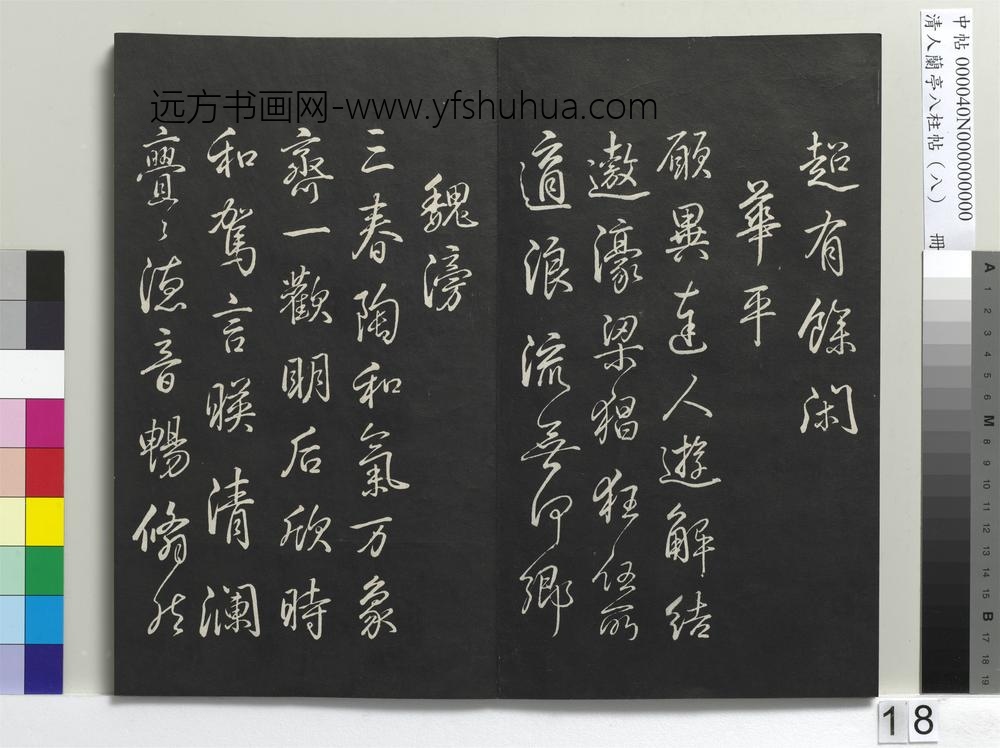 中帖 000040N000000000
清人蘭亭八柱帖（八） 冊
远方书画网-www.yfshuhua.com
超有餘閑
華平
願異達人遊解結
遨濠梁猖狂任所
適浪流無何鄉
魏滂
三春陶和氣万象
齊一歡明后欣時
和駕言暎清瀾
亹〻德音暢翛然
A 1 2 3 4 5 6 M 8 9 10 11 12 13 14 15 B 17 18 19
18